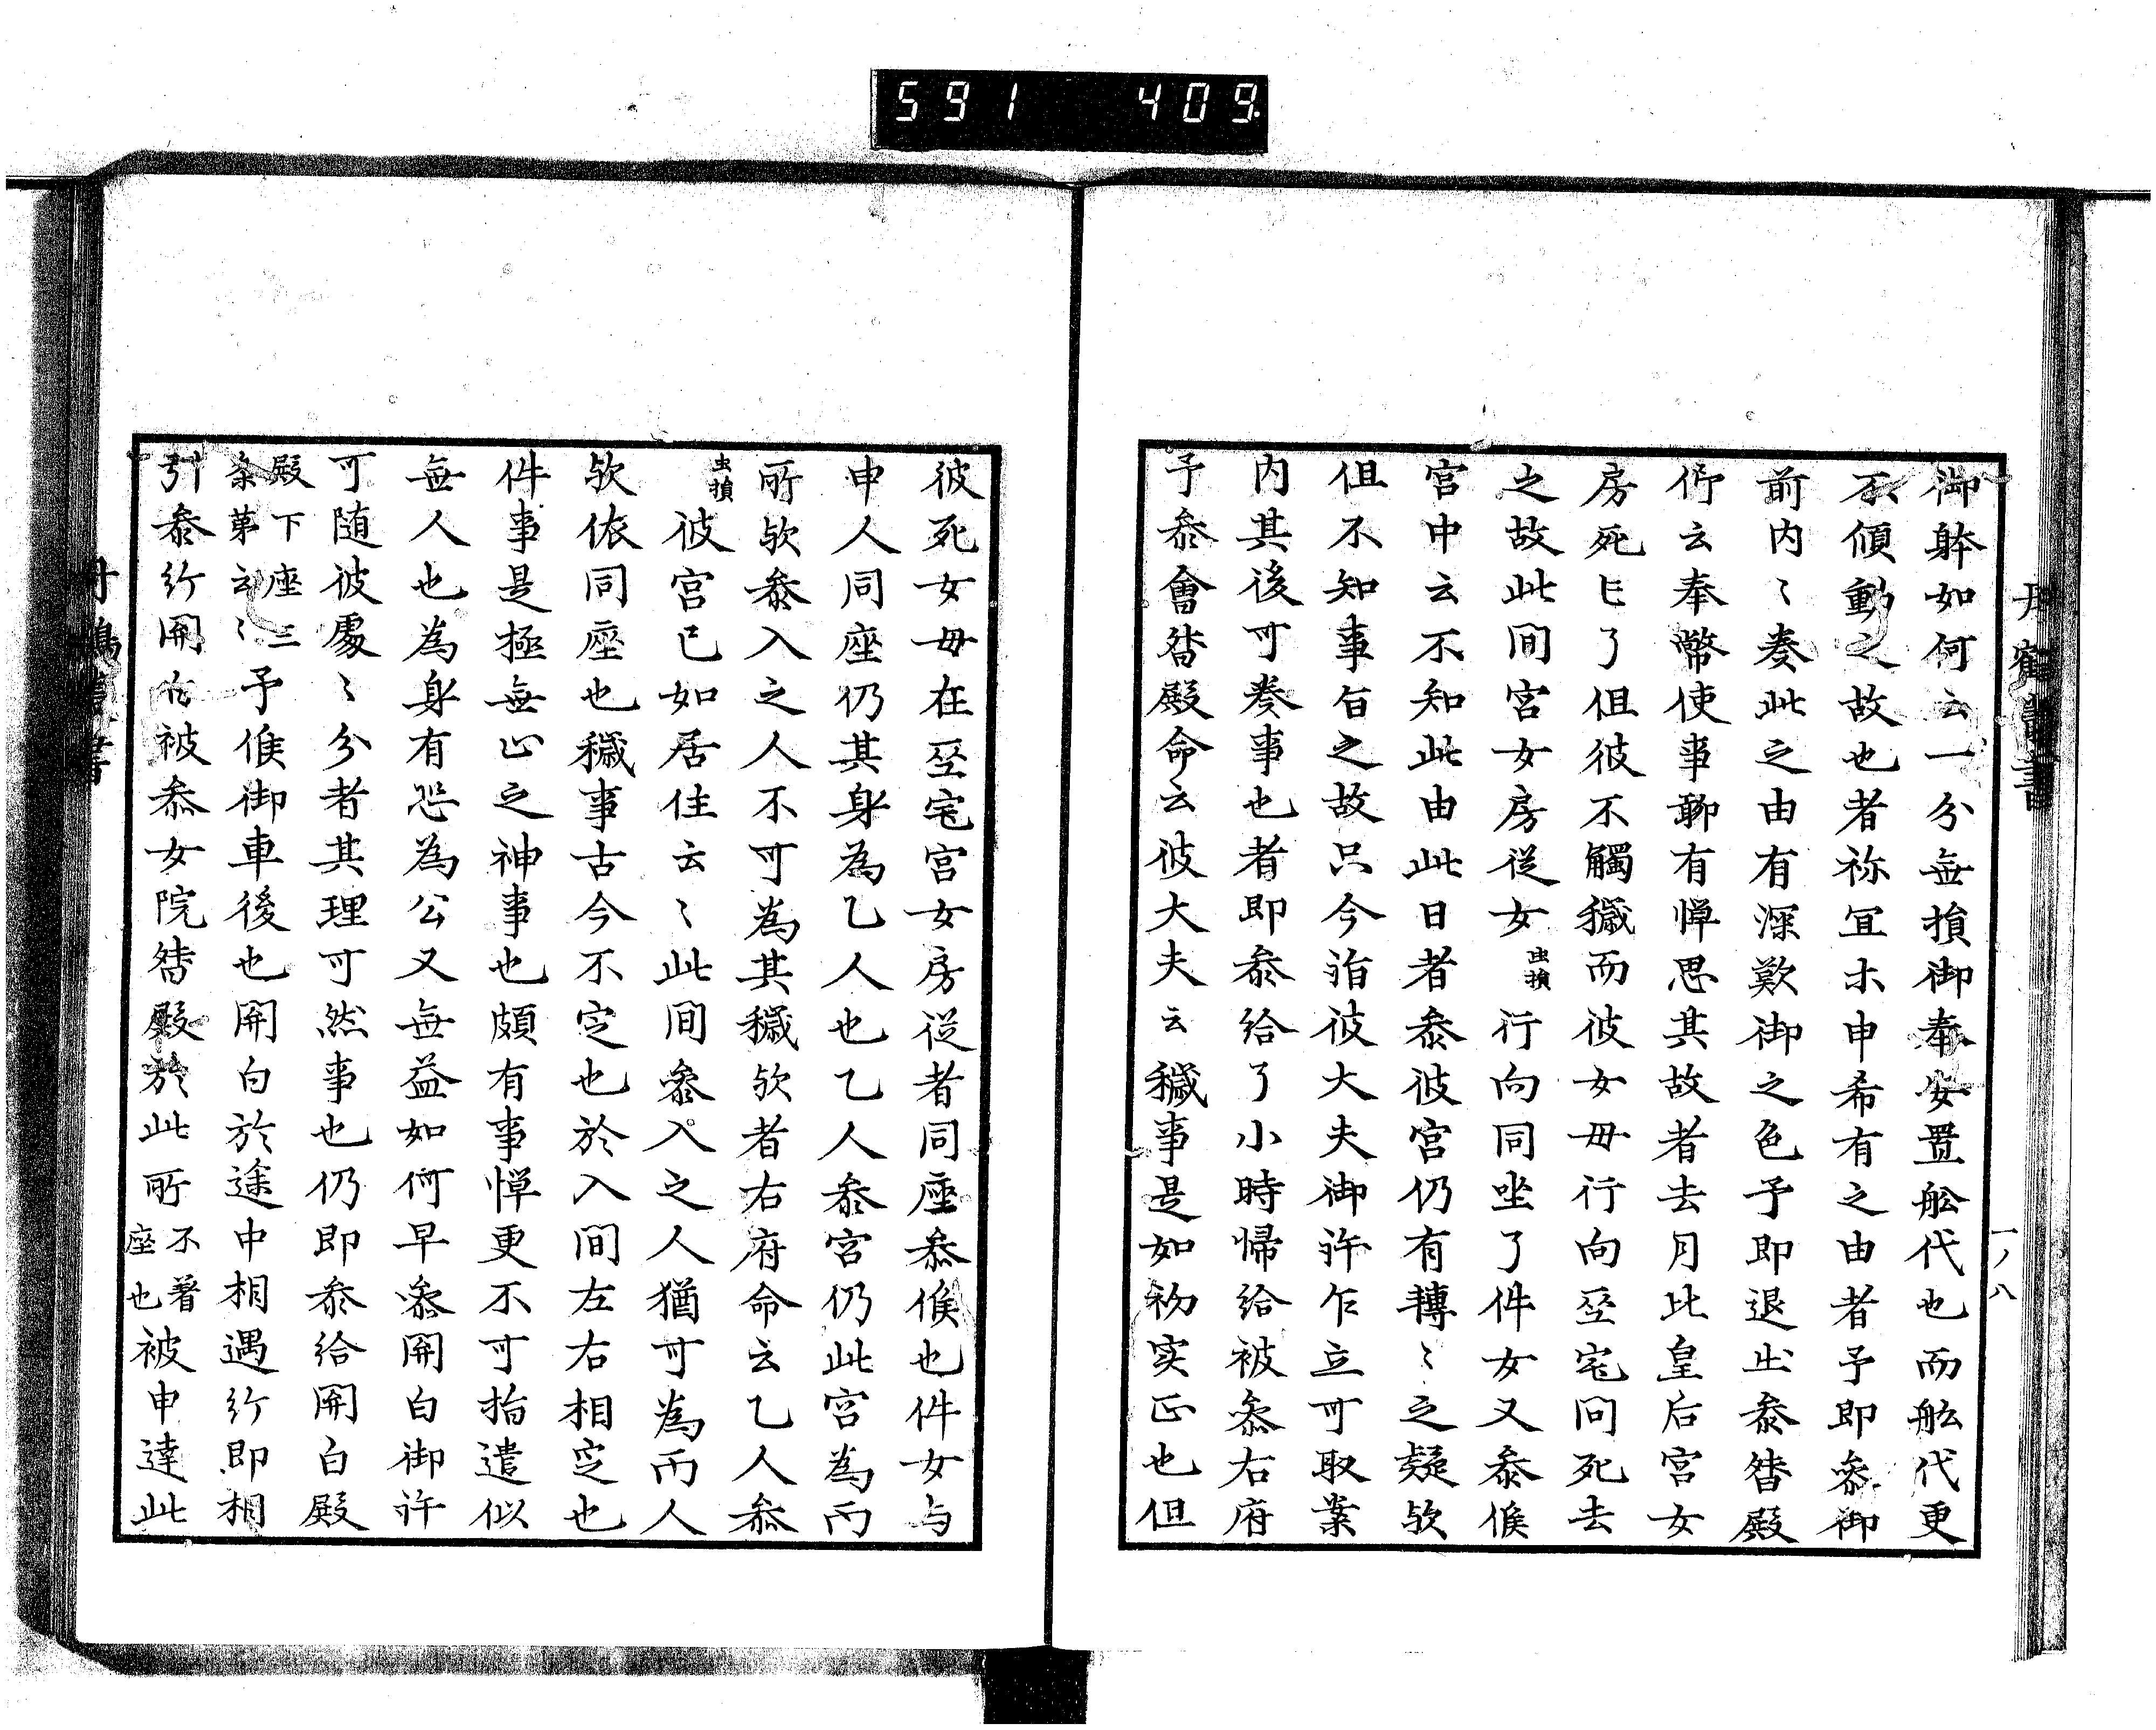 591 409
丹鶴叢書
一ノ八
御躰如何云一分無損御奉安置舩代也而舩代更
不傾動之故也者祢宜木申希有之由者予即叅御
前内〻奏此之由有深歎御之色予即退出叅㫪殿
仰云奉幣使事聊有憚思其故者去月此皇后宮女
房死亡了但彼不觸穢而彼女母行向巫宅同死去
之故此間宮女房従女虫損行向同坐了件女又叅候
宮中云不知此由此日者叅彼宮仍有轉〻之疑欤
但不知事旨之故只今詣彼大夫御許乍立可取案
内其後可奏事也者即叅給了小時帰給被叅右府
予叅會㫪殿命云彼大夫云穢事是如初実正也但
彼死女母在巫宅宮女房従者同座叅候也件女与
申人同座仍其身為乙人也乙人叅宮仍此宮為丙
所欤叅入之人不可為其穢欤者右府命云乙人叅
虫損彼宮已如居住云〻此間叅入之人猶可為丙人
欤依同座也穢事古今不定也於入間左右相定也
件事是極無止之神事也頗有事憚更不可指遣似
無人也為身有恐為公又無益如何早叅関白御許
可随彼處〻分者其理可然事也仍即叅給関白殿
殿下座二条第云〻予候御車後也関白於途中相遇給即相
引叅給関白被叅女院㫪殿於此所不着座也被申達此